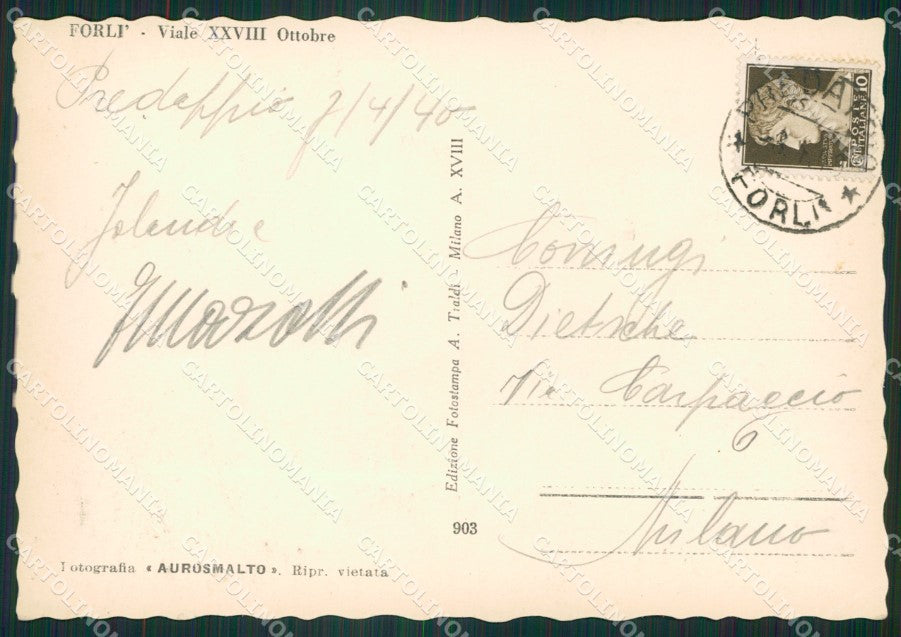 FORLI' - Viale XXVIII Ottobre
Predappio 7/4/40
Jolanda e
Coniugi
Dietsche
Via Carpaccio
6
Milano
Edizione Fotostampa A. Tialdi - Milano A. XVIII
903
Fotografia « AUROSMALTO ». Ripr. vietata
POSTE
ITALIANE
10
FORLI
CARTOLINOMANIA